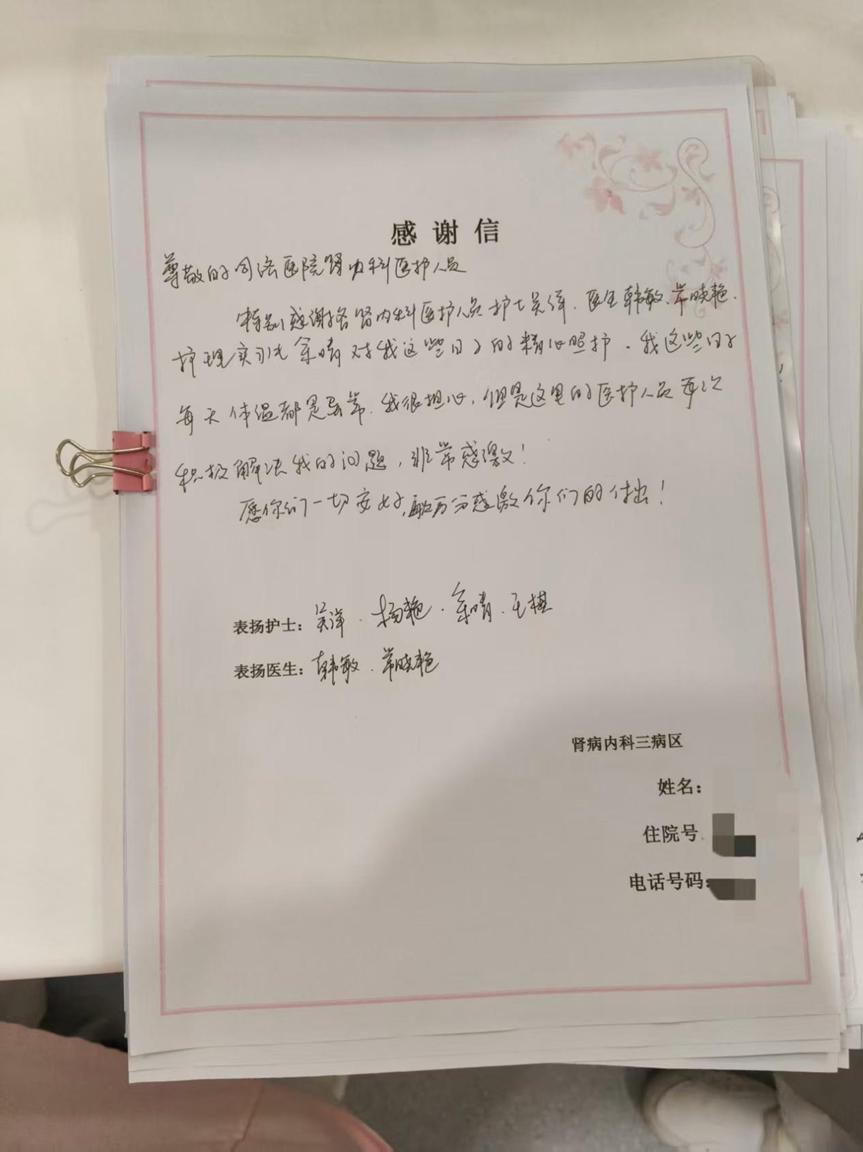 感谢信
尊敬的司法医院肾内科医护人员
特别感谢各肾内科医护人员护士吴洋、医生韩敏、常晓艳、
护理实习生余晴对我这些日子的精心照护。我这些日子
每天体温都是异常,我很担心,但是这里的医护人员每次
积极解决我的问题,非常感激!
愿你们一切安好,万分感激你们的付出!
表扬护士:吴洋、杨艳、余晴、王
表扬医生:韩敏、常晓艳
肾病内科三病区
姓名:
住院号
电话号码: